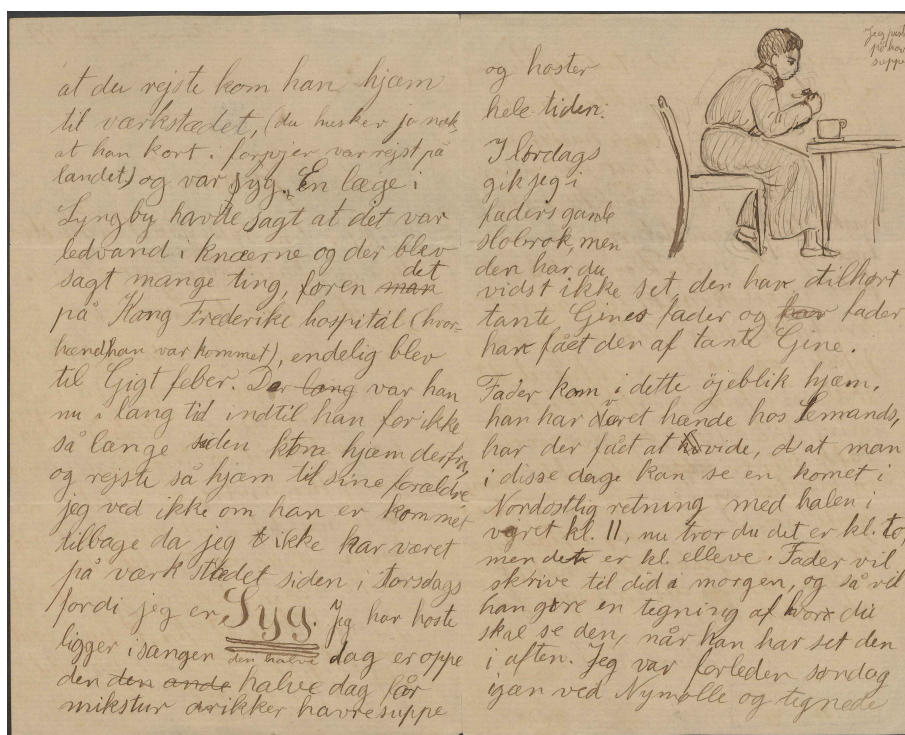 at du rejste kom han hjæm
til værkstædet, (du husker jo nok,
at han kort i forvejer var rejst på
landet) og var syg. En læge i
Lyngby havde sagt at det var
ledvand i knæerne og der blev
sagt mange ting, føren man det
på Kong Frederiks hospital (hvor-
hænd han var kommet), endelig blev
til Gigt feber. Der lang var han
nu i lang tid indtil han for ikke
så længe siden kom hjæm derfra,
og rejste så hjæm til sine forældre
jeg ved ikke om han er kommet
tilbage da jeg ikke har været
på værkstædet siden i Torsdags
fordi jeg er Syg. Jeg har hoste
ligger i sængen den halve dag er oppe
den den ande halve dag får
mikstur drikker havresuppe
og hoster
hele tiden.
I lørdags
gik jeg i
faders gamle
slobrok, men
den har du
vidst ikke set, den har tilhørt
tante Gines fader og har fader
har fået den af tante Gine.
Fader kom i dette öjeblik hjæm,
han har været hænde hos Lemands,
har der fået at vide, at man
i disse dage kan se en komet i
Nordostlig retning med halen i
vejret kl. 11, nu tror du det er kl. to,
men det er kl. elleve. Fader vil
skrive til did i morgen, og så vil
han gøre en tegning af hvor du
skal se den, når han har set den
i aften. Jeg var forleden søndag
igæn ved Nymølle og tegnede
Jeg
på hav
suppe